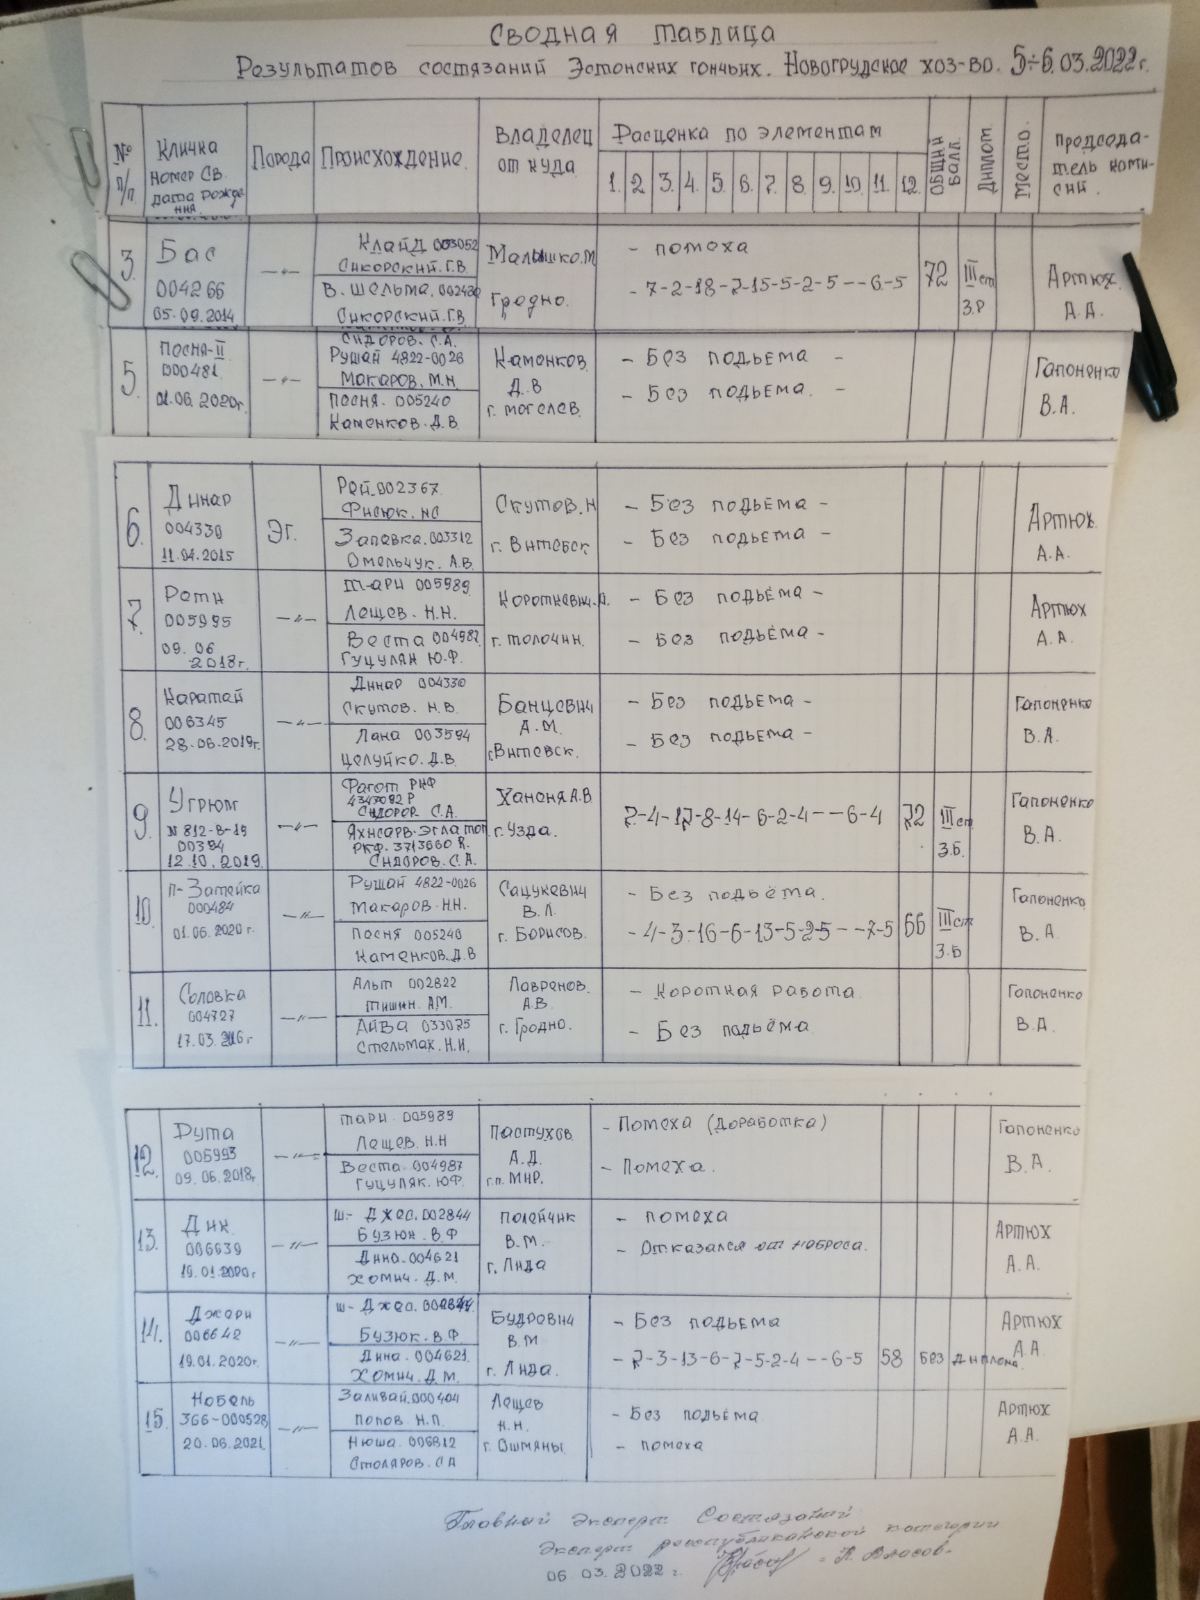 Сводная таблица
Результатов состязаний Эстонских гончьих. Новогрудское хоз-во. 5÷6.03.2022г.
№ п/п
Кличка номер св. дата рождения.
Порода
Происхождение.
Владелец от куда
Расценка по элементам
1. 2. 3. 4. 5. 6. 7. 8. 9. 10. 11. 12.
Общий балл.
Диплом.
Место.
Председатель комисии.
3.
Бас
004266
05.09.2014
—"—
Клайд 003052
Сикорский.Г.В
В. Шельма.
Сикорский.Г.В
Малышко.М
Гродно.
- помеха
- 7-2-18-7-15-5-2-5--6-5
72
III ст
3.Р
Артюх.
А.А.
5.
Песня-II
000481
01.06.2020г.
—"—
Сидоров. С.А.
Рушай 4822-0026
Макаров. М.Н.
Песня. 005240
Каменков.Д.В
Каменков
Д.В
г. Могелев.
- Без подьема -
- Без подьема. -
Гапоненко
В.А.
6.
Динар
004330
11.04.2015
Эг.
Рой.002367.
Фисюк. НС
Запевка.003312
Омельчук. А.В.
Скутов.Н
г. Витебск
- Без подьема -
- Без подьема -
Артюх
А.А.
7.
Рети
005995
09.06
2018г.
—"—
Тари 005989
Лещев. Н.Н.
Веста 004987
Гуцулян Ю.Ф.
г. Толочин.
- Без подьёма -
- Без подьёма -
Артюх
А.А.
8.
Каратай
006345
28.06.2019г.
—"—
Динар 004330
Скутов. Н.В.
Лана 003594
Целуйко.Д.В.
Банцевич
А.М.
г.Витевск.
- Без подьема -
- Без подьема -
Гапоненко
В.А.
9.
Угрюм
№ 812-В-19
00394
12.10.2019.
—"—
Фагот РКФ
4347092 Р
Сидоров. С.А.
РКФ. 3713660 R.
Сидоров. С.А.
Ханеня А.В
г. Узда.
7-4-17-8-14-6-2-4--6-4
72
III ст
3.Б.
Гапоненко
В.А.
10.
П-Затейка
000484
01.06.2020г.
—"—
Рушай 4822-0026
Макаров.Н.Н.
Песня 005240
Каменков.Д.В
Сацукевич
В.Л.
г. Борисов.
- Без подьёма.
- 4-3-16-6-13-5-2-5--7-5
66
III ст
3.Б
Гапоненко
В.А.
11.
Соловка
004727
17.03.2016г
—"—
Альт 002822
Тишин. А.М.
Айва 033075
Стельмах.Н.И.
Лавренов.
А.В.
г. Гродно.
- Короткая работа
- Без подьёма
Гапоненко
В.А.
12.
Дута
005993
09.06.2018г
—"—
Тари. 005989
Лещев. Н.Н
Веста. 004987
Гуцуляк. Ю.Ф.
Пастухов
А.Д.
г.п. Мир.
- Помеха (доработка)
- Помеха.
Гапоненко
В.А.
13.
Дик.
006639
19.01.2020г
—"—
ш.- Джес.002844
Бузюк. В.Ф
Дина.004621
Хомич. Д.М.
Полейчик
В.М.
г. Лида
- помеха
- Отказался от наброса.
Артюх
А.А.
14.
Джери
006642
19.01.2020г.
—"—
ш- Джес.
Бузюк.В.Ф.
Дина. 004621.
Хомич.Д.М.
Будревич
В.М
г. Лида.
- Без подьема
- 7-3-13-6-7-5-2-4--6-5
58
без диплома.
Артюх
А.А
15.
Нобель
366-000528
20.06.2021
—"—
Заливай.000404
Попов. Н.П.
Нюша. 006812
Столяров.СА
Лещев
Н.Н.
г. Ошмяны.
- Без подьёма
- помеха
Артюх
А.А.
Главный Эксперт Состязаний
Эксперт республиканской категории
06 03.2022г. - Власов-